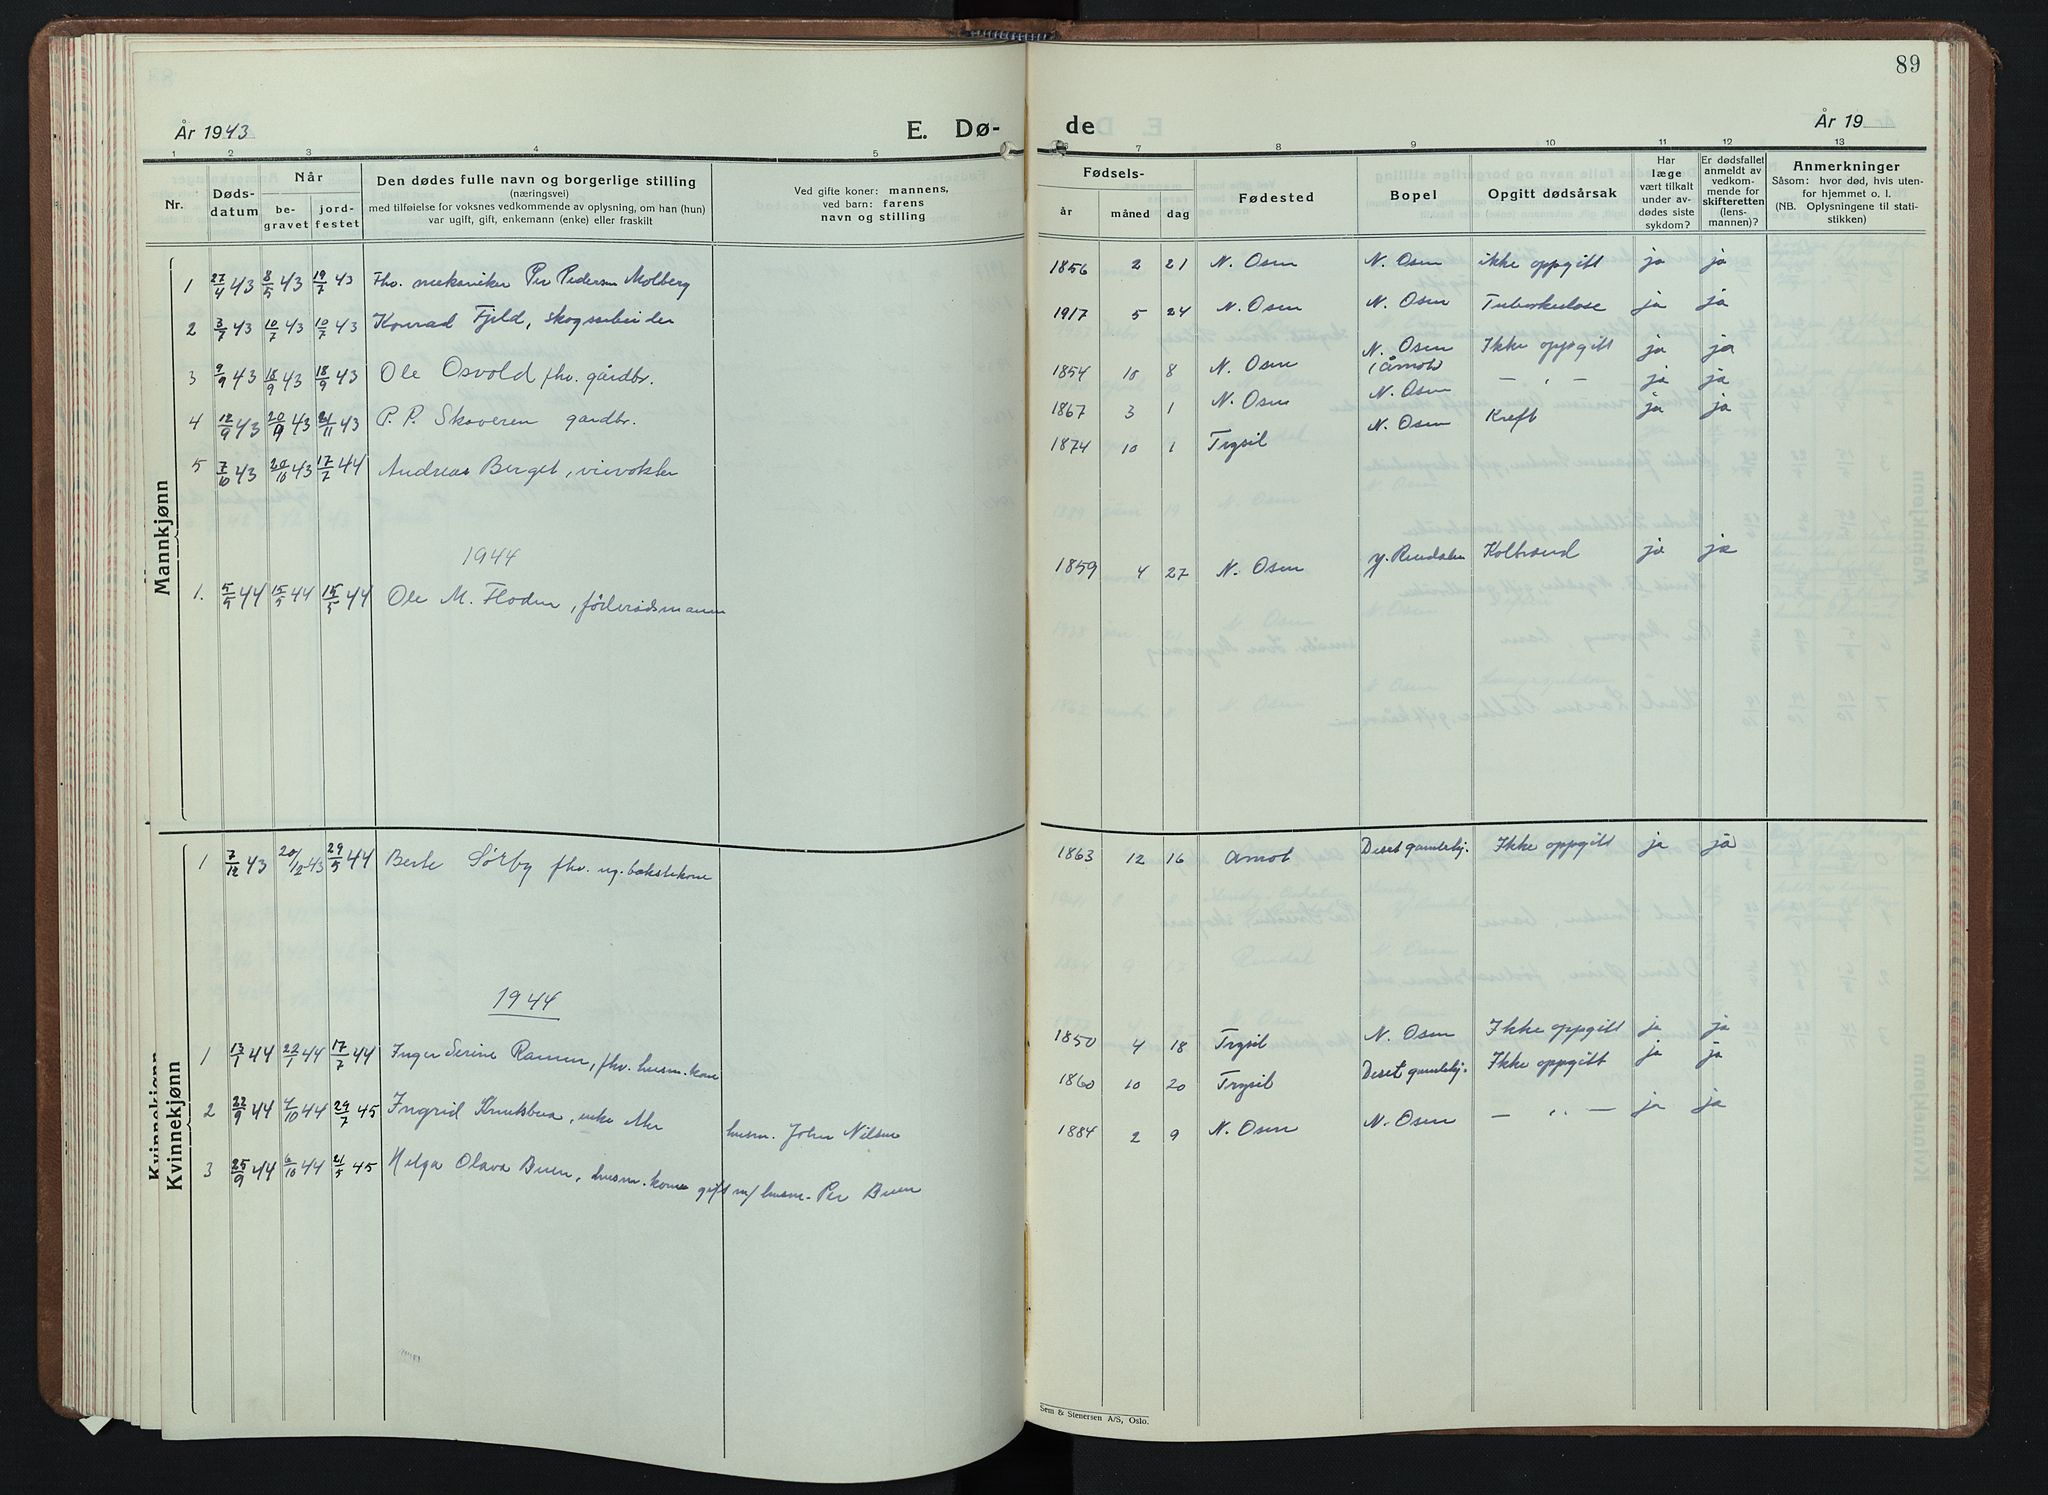 89
År 1943
E. Dø-
de
År 19
1 2 3 4 5
6 7 8 9 10 11 12 13
Nr.
Døds-
datum
Når
be-
gravet
jord-
festet
Den dødes fulle navn og borgerlige stilling
(næringsvei)
med tilføielse for voksnes vedkommende av oplysning, om han (hun)
var ugift, gift, enkemann (enke) eller fraskilt
Ved gifte koner: mannens,
ved barn: farens
navn og stilling
Fødsels-
år måned dag
Fødested
Bopel
Opgitt dødsårsak
Har
læge
vært tilkalt
under av-
dødes siste
sykdom?
Er dødsfallet
anmeldt av
vedkom-
mende for
skifteretten
(lens-
mannen)?
Anmerkninger
Såsom: hvor død, hvis uten-
for hjemmet o. l.
(NB. Oplysningene til stati-
stikken)
Mannkjønn
1 27/4 43 8/5 43 19/7 43 Fhv. mekaniker Per Pedersen Molberg 1856 2 21 N. Osen N. Osen ikke oppgitt ja ja
2 3/7 43 10/7 43 10/7 43 Konrad Fjeld, skogsarbeider 1917 5 24 N. Osen N. Osen Tuberkulose ja ja
3 9/9 43 18/9 43 18/9 43 Ole Osvold fhv. gårdbr. 1854 10 8 N. Osen N. Osen (Åmot) Ikke oppgitt ja ja
4 12/9 43 20/9 43 21/11 43 P. P. Skaveren gardbr. 1867 3 1 N. Osen N. Osen — " — ja ja
5 7/10 43 20/10 43 17/7 44 Andreas Berget, 1874 10 1 Trysil N. Osen Kreft ja ja
1944
1. 5/5 44 15/5 44 15/5 44 Ole M. Floden, føderådsmann 1859 4 27 N. Osen Y. Rendalen Kolbrand ja ja
Kvinnekjønn
Kvinnekjønn
1 7/12 43 20/12 43 29/5 44 Berte Sørby fhv. ug. bakstekone 1863 12 16 Amot Deset gamlehj. Ikke oppgitt ja ja
1944
1 13/1 44 22/1 44 17/7 44 Inger Serine Ramen, fhv. husm.kone 1850 4 18 Trysil N. Osen Ikke oppgitt ja ja
2 22/9 44 4/10 44 29/7 45 Ingrid Knutsbua, enke etter husm. John Nilsen 1860 10 20 Trysil Deset gamlehj. Ikke oppgitt ja ja
3 25/9 44 6/10 44 21/5 45 Helga Olava Buen, husm.kone gift m/ husm. Per Buen 1884 2 9 N. Osen N. Osen — " — ja ja
Sem & Stenersen A/S, Oslo.